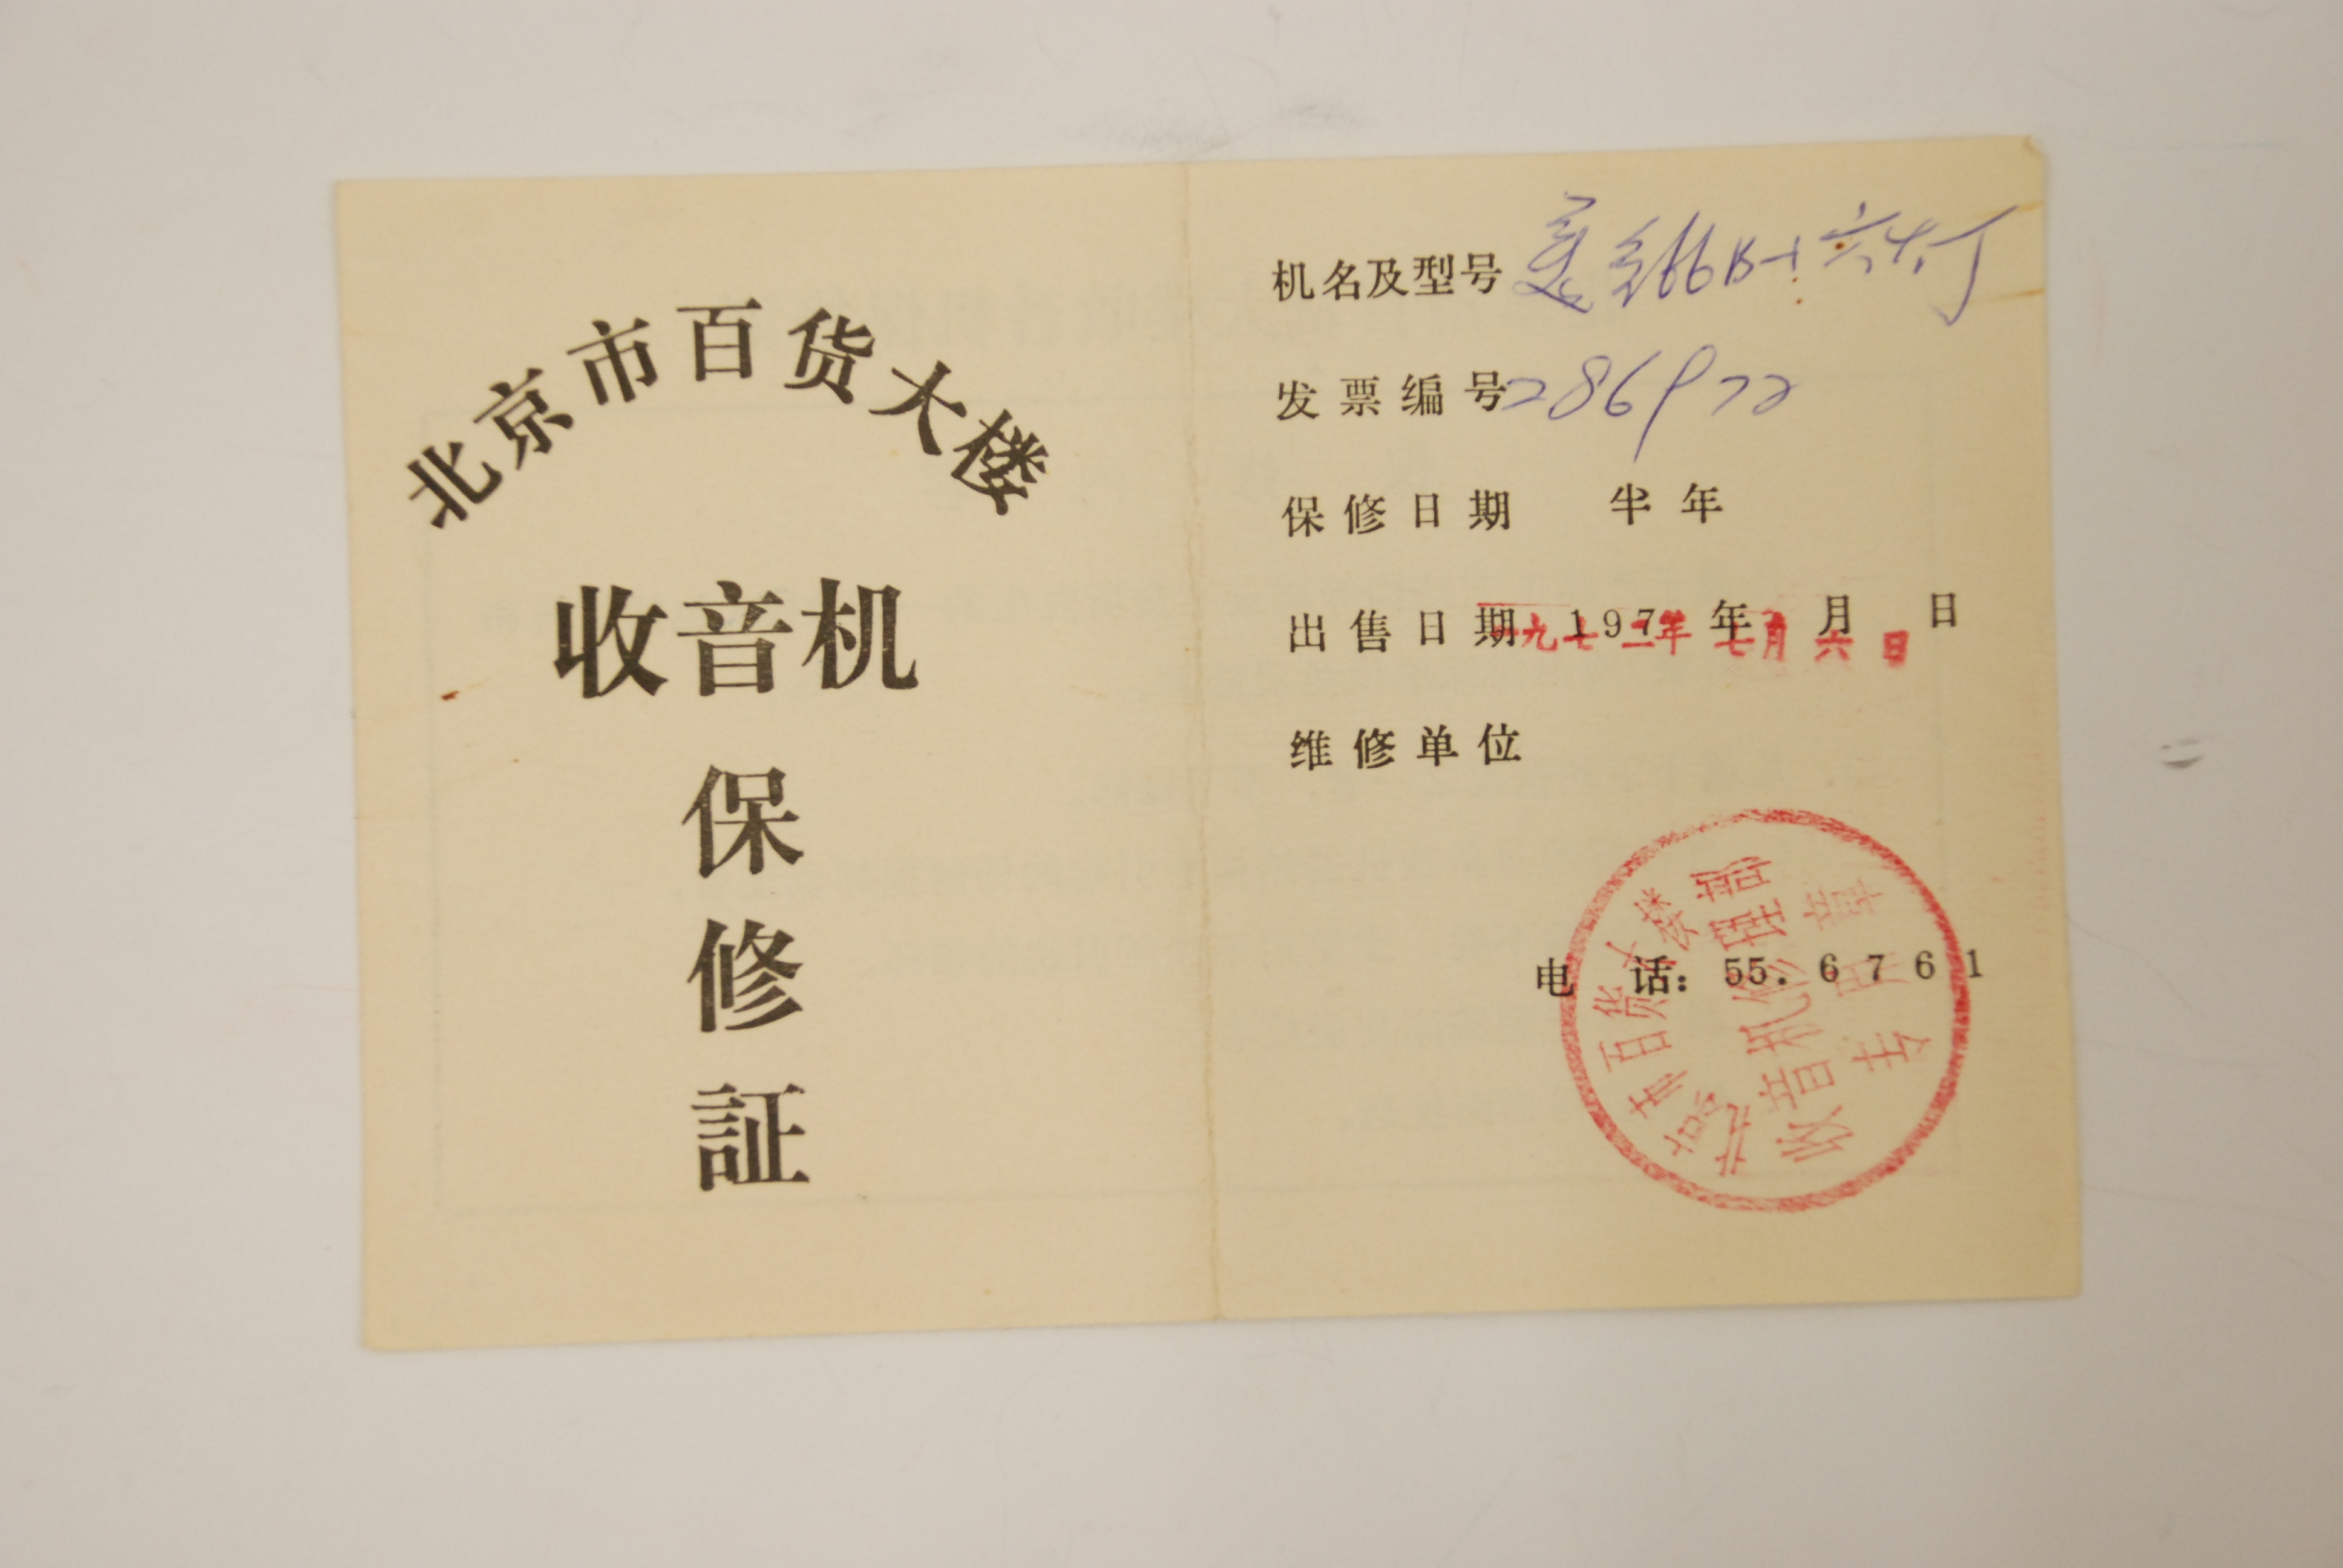 北京市百货大楼
收音机
保
修
証
机名及型号 美多66B-1 六灯
发票编号 286972
保修日期 半年
出售日期 197 年 月 日
一九七二年 七月 六 日
维修单位
电 话: 55.6761
北京市百货大楼
收音机修理部
专用章